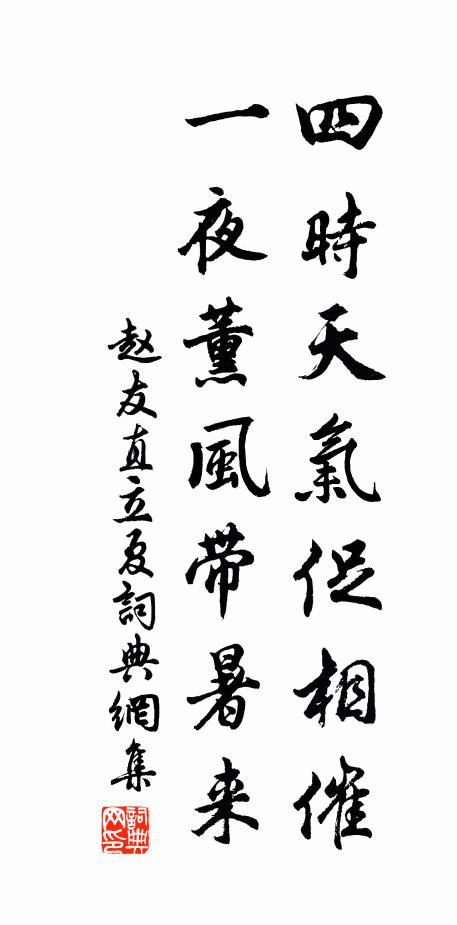 四時天氣促相催
一夜薰風带暑来
赵友直立夏詞典網集
詞典網印